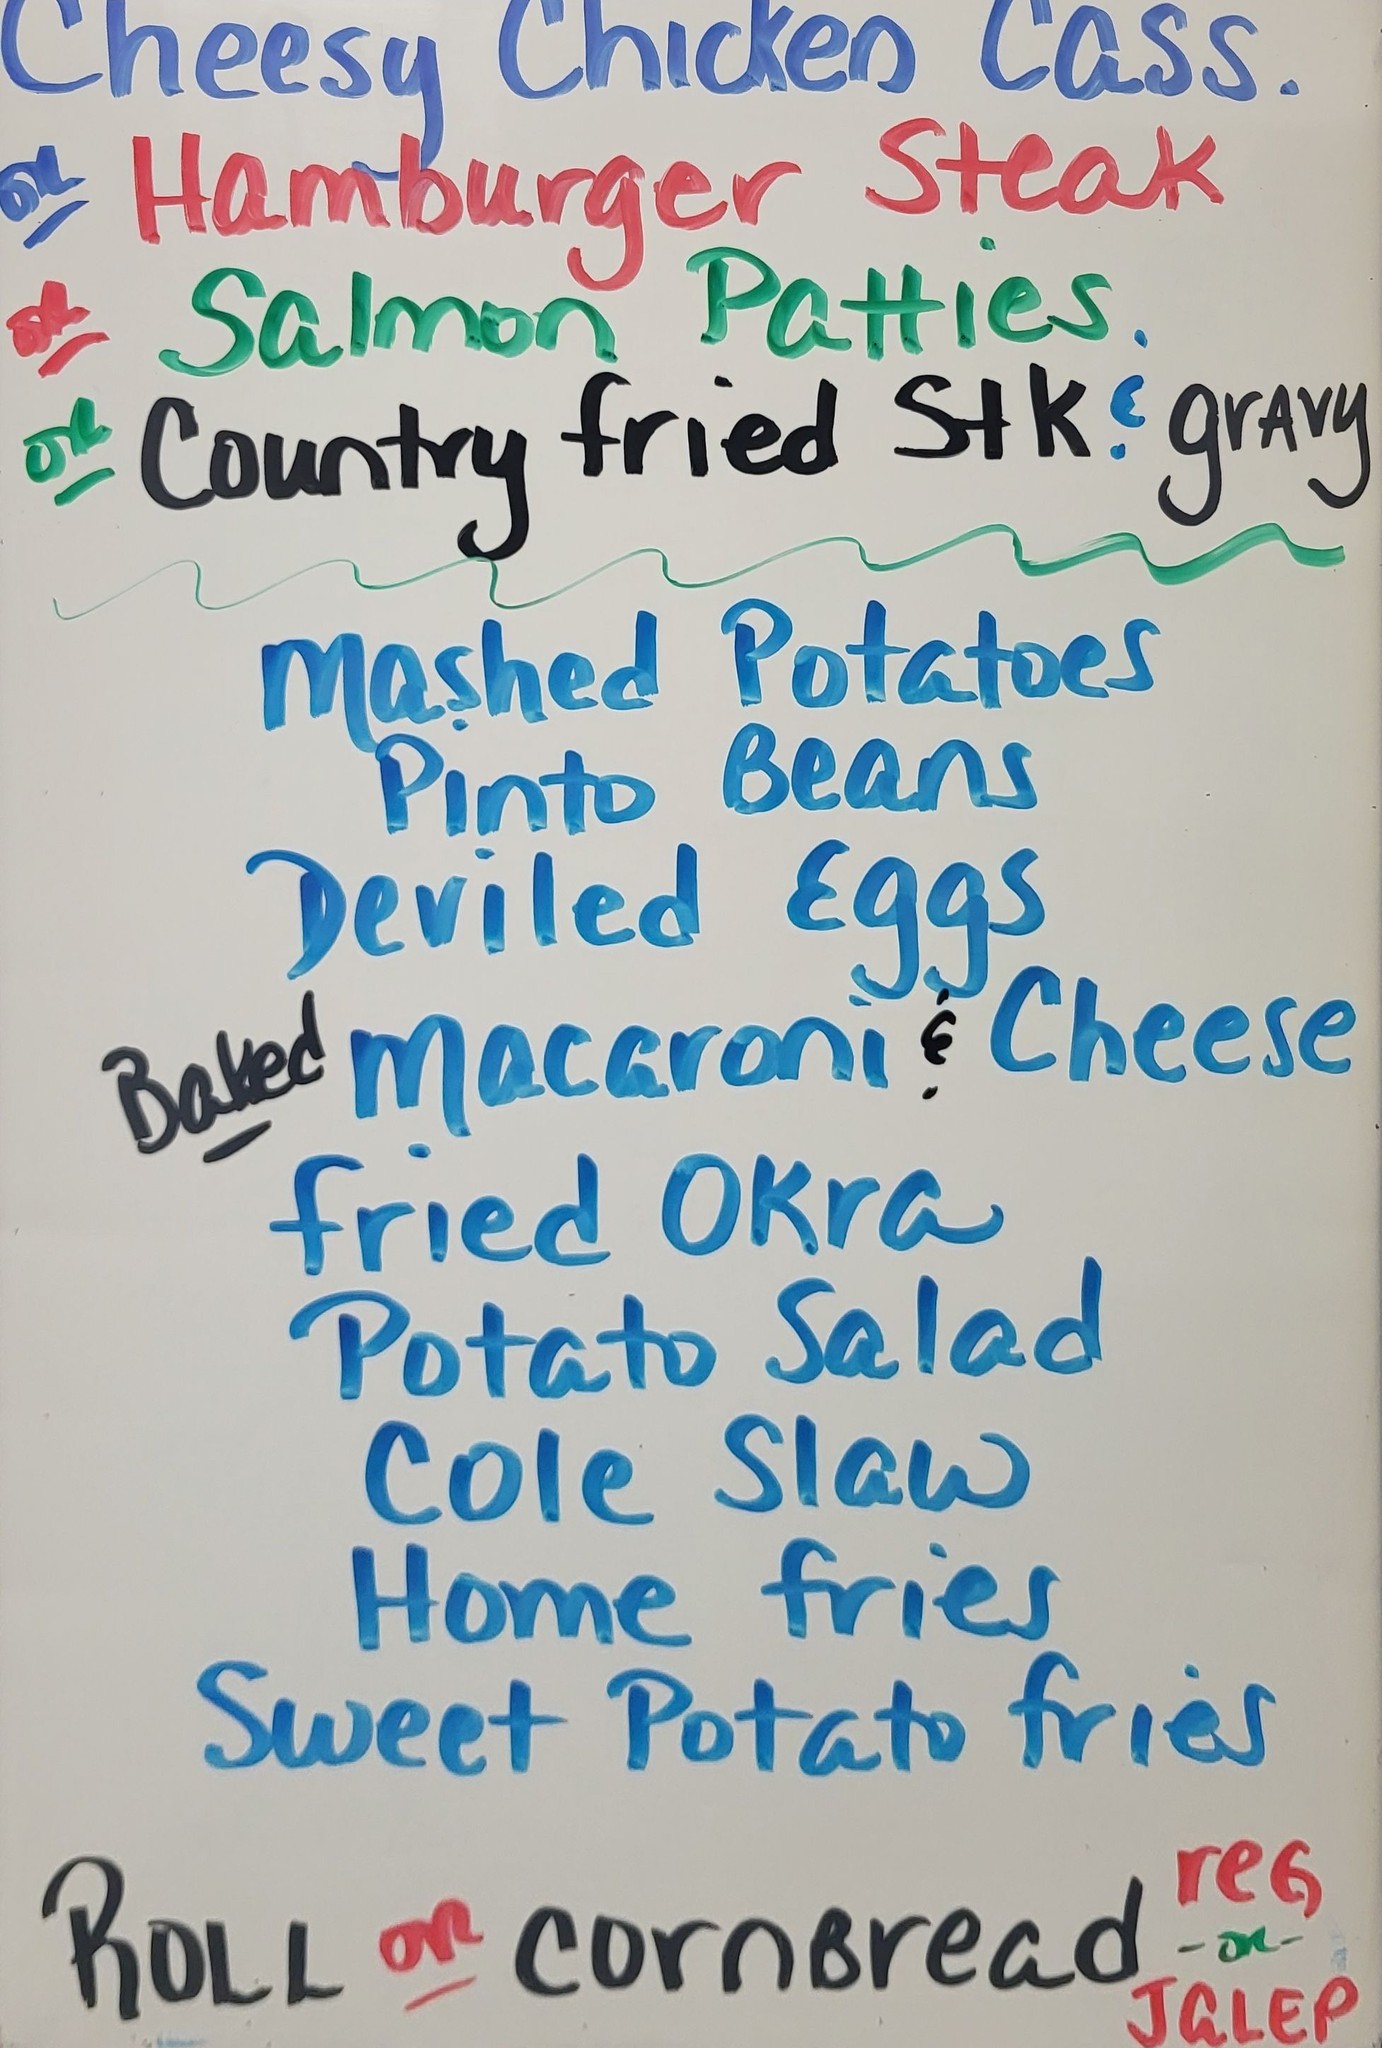 Cheesy Chicken Cass.
or Hamburger Steak
or Salmon Patties.
or Country fried Stk & grAvy
Mashed Potatoes
Pinto Beans
Deviled Eggs
Baked Macaroni & Cheese
fried Okra
Potato Salad
Cole Slaw
Home fries
Sweet Potato fries
ROLL OR cornBread reG
-or-
JALEP